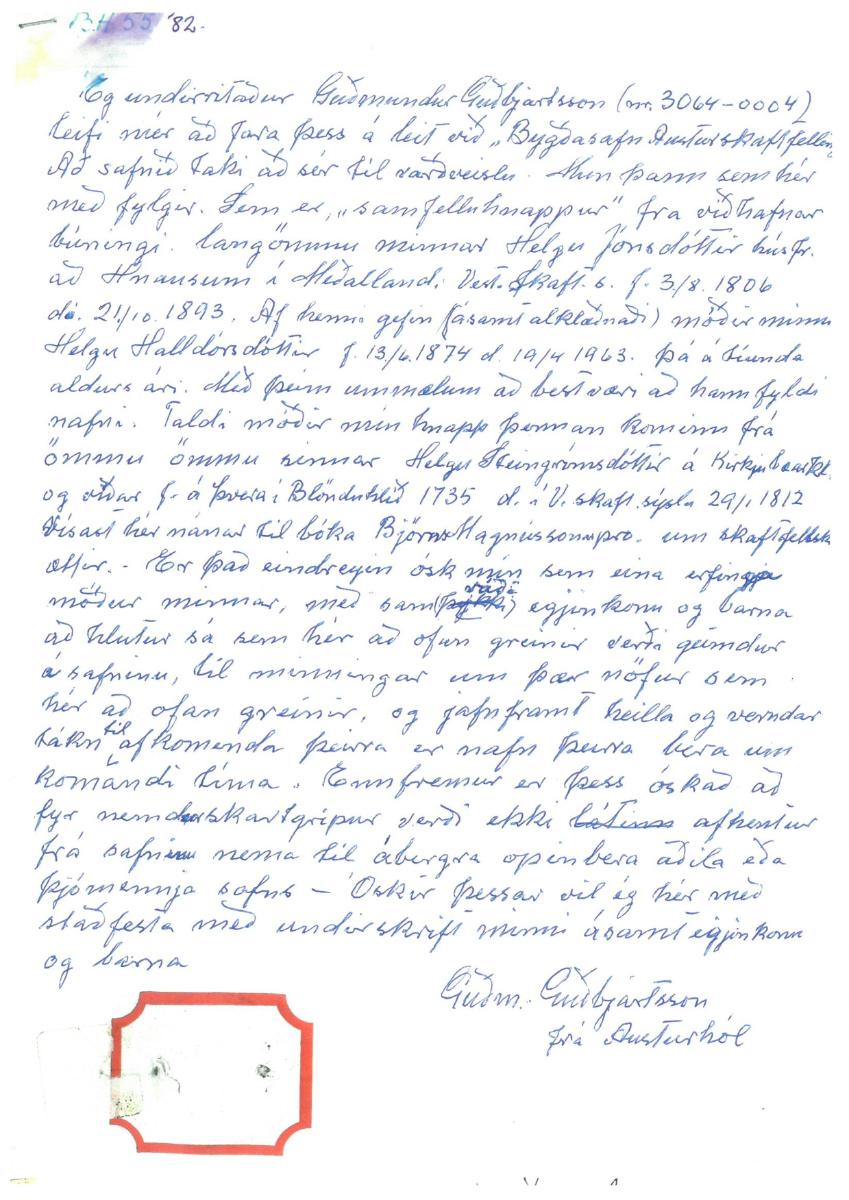 B.H. 55 '82.
Ég undirritaður Guðmundur Guðbjartsson (nr. 3064-0004)
leifi mér að fara þess á leit við „Bygðasafn Austurskaftfelling
Að safnið taki að sér til varðveislu. Mun þann sem hér
með fylgir. Sem er, „samfelluhnappur" frá viðhafnar
búningi. langömmu minnar Helgu Jónsdóttir húsfr.
að Hnausum í Meðallandi Vest. Skaft. s. f. 3/8. 1806
dá. 21/10. 1893. Af henni gefin (ásamt alklæðnaði) móðir minni
Helgu Halldórsdóttir f. 13/6. 1874 d. 19/4 1963. þá á tíunda
aldurs ári. Með þeim ummælum að best væri að hann fyldi
nafni. Taldi móðir mín hnapp þennan kominn frá
ömmu ömmu sinnar Helgu Steingrímsdóttir á Kirkjubæarkl.
og viðar f. á Þverá í Blönduhlíð 1735 d. í V. skaft. sýslu 29/1. 1812
Vísast hér nánar til bóka Björns Magnússonar pro. um skaftfellsk
ættir. - Er það eindregin ósk mín sem eina erfingja
móður minnar, með sam(þykki) váði egjinkonu og barna
að hlutur sá sem hér að ofan greinir verði geimdur
á safninu, til minningar um þær nöfur sem
hér að ofan greinir, og jafnframt heilla og verndar
tákn til afkomenda þeirra er nafn þeirra bera um
komandi tíma. Ennfremur er þess óskað að
fyr nemdur skartgripur verði ekki látinn afhentur
frá safninu nema til ábyrgra opinbera aðila eða
þjóminja safns - Óskir þessar vil ég hér með
staðfesta með undirskrift minni ásamt egjinkonu
og barna
Guðm. Guðbjartsson
frá Austurhól